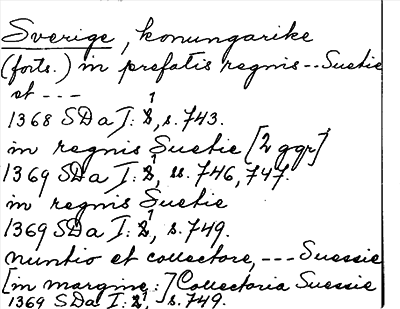 Sverige, konungarike
(forts.) in prefatis regnis -- Suetie
et ---
1368 SDa I: 1, s. 743.
in regnis Suetie [2 ggr]
1369 SDa I: 1, ss. 746, 747.
in regnis Suetie
1369 SDa I: 1, s. 749.
nuntio et collectore, --- Suessie
[in margine:] Collectoria Suessie
1369 SDa I: 1, s. 749.